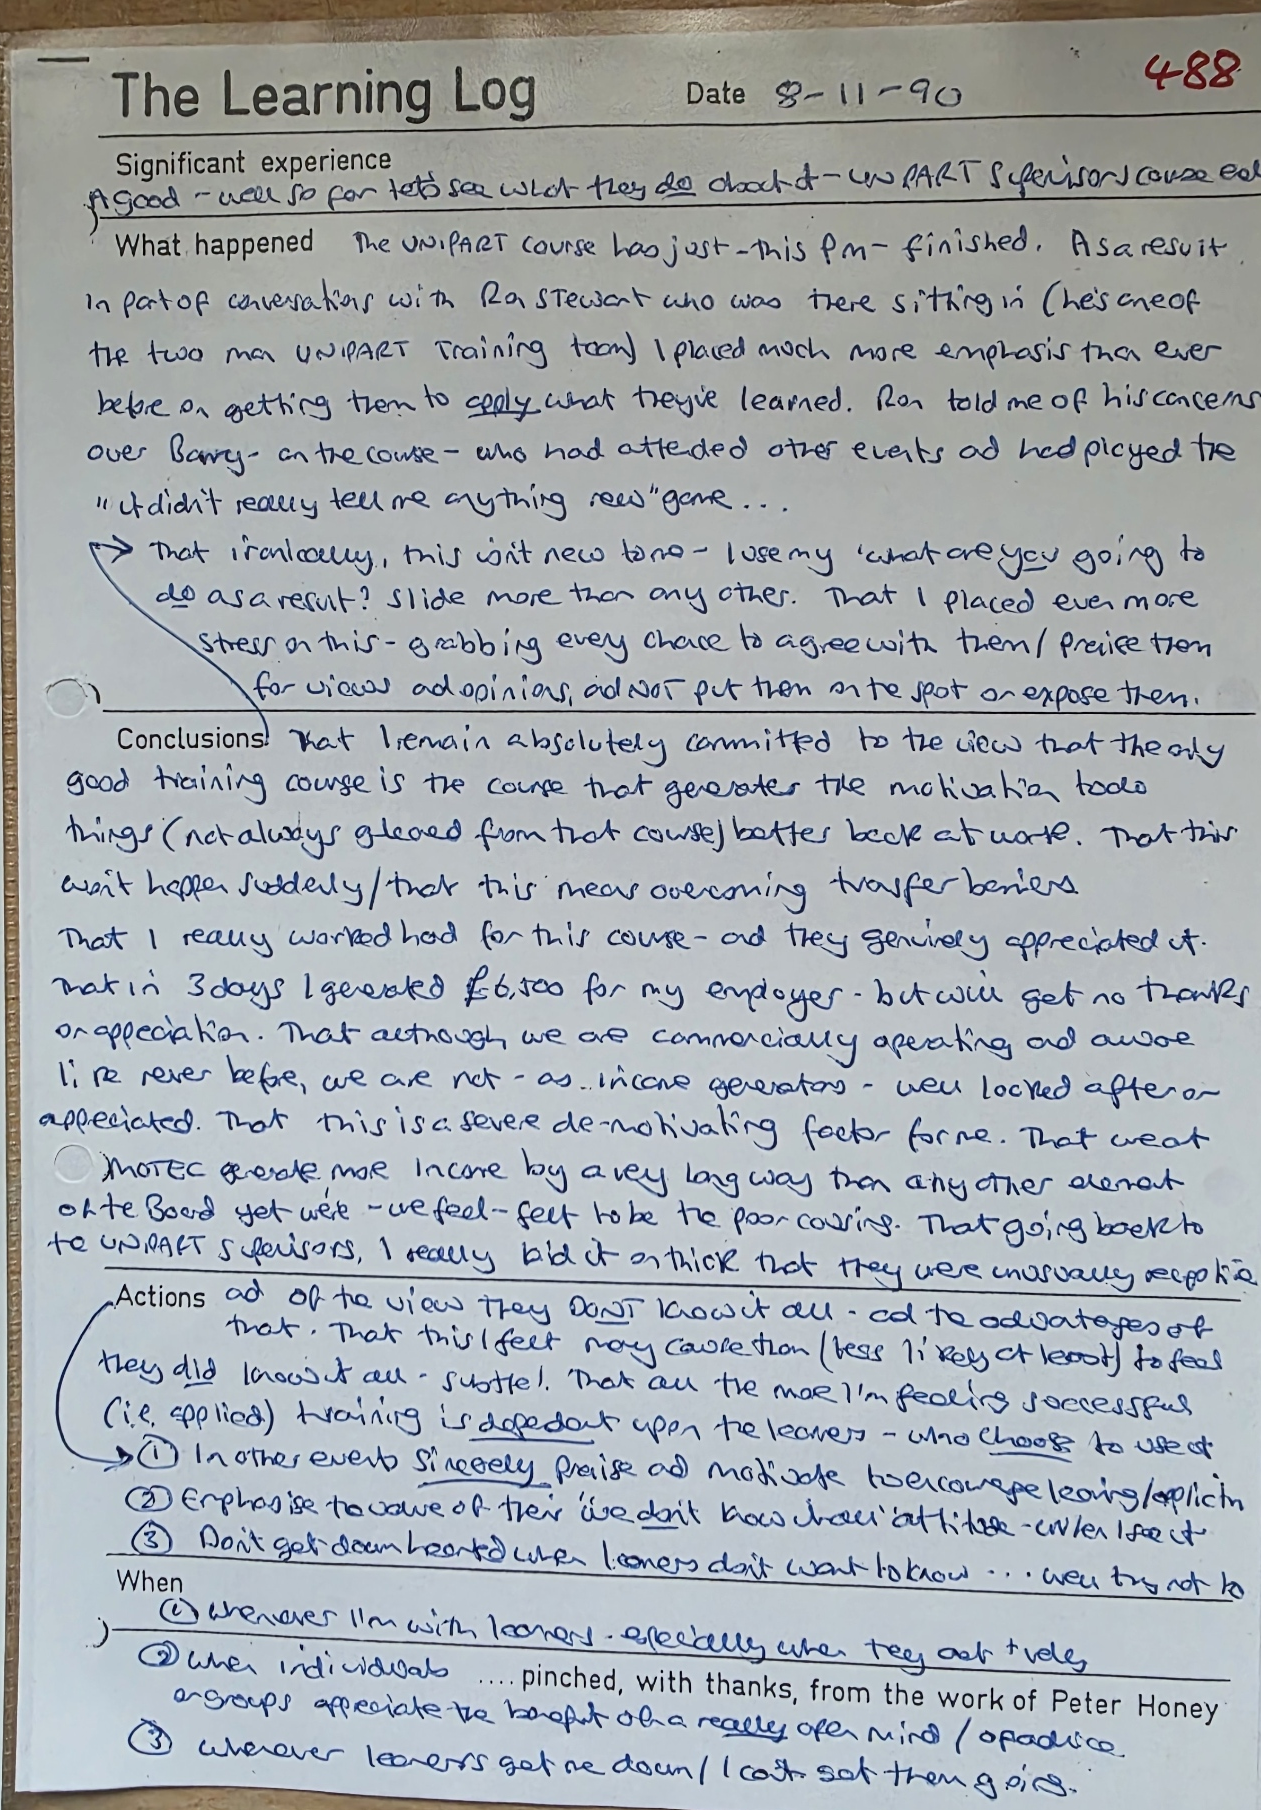 488
The Learning Log Date 8-11-90
Significant experience
A good - well so far let's see what they do about it - UNIPART Supervisors course
What happened The UNIPART course has just - this pm - finished. As a result
in part of conversations with Ron Stewart who was there sitting in (he's one of
the two man UNIPART Training team) I placed much more emphasis than ever
before on getting them to apply what they've learned. Ron told me of his concerns
over Barry - on the course - who had attended other events ad had played the
"it didn't really tell me anything new" game...
That ironically, this isn't new to me - I use my 'what are you going to
do as a result? slide more than any other. That I placed even more
stress on this - grabbing every chance to agree with them / praise them
for views ad opinions, ad NOT put them on the spot or expose them.
Conclusions That I remain absolutely committed to the view that the only
good training course is the course that generates the motivation to do
things (not always gleaned from that course) better back at work. That this
won't happen suddenly / that this means overcoming transfer barriers
That I really worked hard for this course - ad they genuinely appreciated it.
That in 3 days I generated £6,500 for my employer - but will get no thanks
or appreciation. That although we are commercially operating ad aware
like never before, we are not - as income generators - well looked after or
appreciated. That this is a severe de-motivating factor for me. That we at
MOTEC generate more income by a very long way than any other element
of the Board yet we're - we feel - felt to be the poor cousins. That going back to
the UNIPART supervisors, I really laid it on thick that they were unusually receptive
Actions ad of the view they DON'T know it all - ad the advantages of
that. That this I felt may cause them (less likely at least) to feel
they did know it all - subtle!. That all the more I'm feeling successful
(i.e. applied) training is dependent upon the learners - who choose to use it
① In other events sincerely praise ad motivate to encourage learning/applictn
② Emphasise the value of their 'we don't know it all' attitude - when I see it
③ Don't get down hearted when learners don't want to know ... well try not to
When
① whenever I'm with learners - especially when they act +vely
② when individuals .... pinched, with thanks, from the work of Peter Honey
or groups appreciate the benefit of a really open mind / of advice
③ whenever learners get me down / I can't get them going.